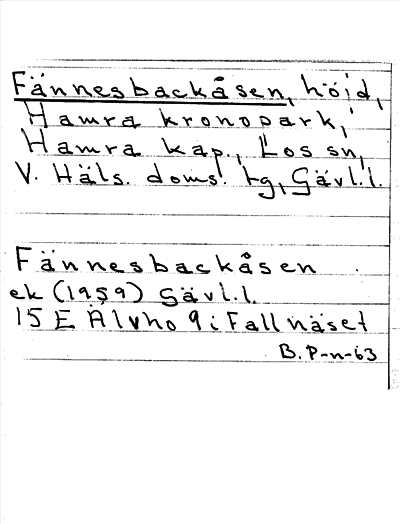 Fännesbackåsen, höjd,
Hamra kronopark,
Hamra kap., Los sn,
V. Häls. doms. tg, Gävl.l.
Fännesbackåsen
ek (1959) Gävl.l.
15 E Älvho 9 i Fallnäset
B. P-n-63